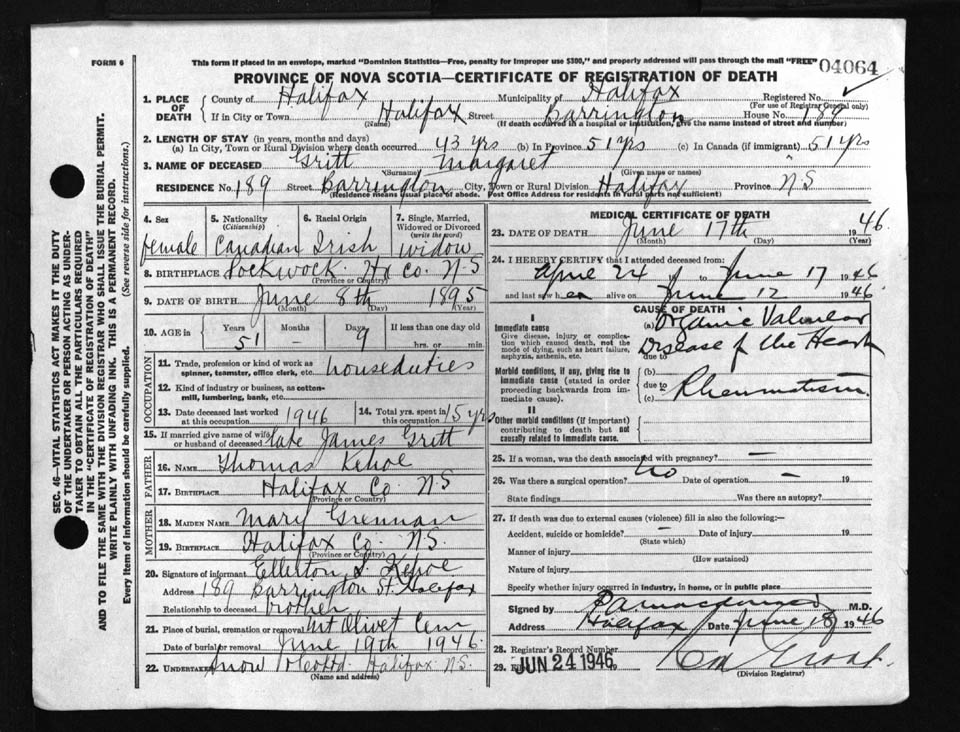 FORM 6
This form if placed in an envelope, marked "Dominion Statistics—Free, penalty for improper use $300," and properly addressed will pass through the mail "FREE"
04064
PROVINCE OF NOVA SCOTIA—CERTIFICATE OF REGISTRATION OF DEATH
SEC. 46—VITAL STATISTICS ACT MAKES IT THE DUTY
OF THE UNDERTAKER OR PERSON ACTING AS UNDER-
TAKER TO OBTAIN ALL THE PARTICULARS REQUIRED
IN THE "CERTIFICATE OF REGISTRATION OF DEATH"
AND TO FILE THE SAME WITH THE DIVISION REGISTRAR WHO SHALL ISSUE THE BURIAL PERMIT.
WRITE PLAINLY WITH UNFADING INK. THIS IS A PERMANENT RECORD.
Every item of information should be carefully supplied. (See reverse side for instructions.)
1. PLACE OF DEATH
County of Halifax Municipality of Halifax Registered No.
(For use of Registrar General only)
If in City or Town Halifax Street Barrington House No. 189
(Name) (If death occurred in a hospital or institution, give the name instead of street and number)
2. LENGTH OF STAY (in years, months and days)
(a) In City, Town or Rural Division where death occurred 43 yrs (b) In Province 51 yrs (c) In Canada (if immigrant) 51 yrs
3. NAME OF DECEASED Gritt Margaret
(Surname) (Given name or names)
RESIDENCE No. 189 Street Barrington City, Town or Rural Division Halifax Province N.S
(Residence means usual place of abode. Post Office Address for Residents in Rural parts not sufficient)
4. Sex female
5. Nationality (Citizenship) Canadian
6. Racial Origin Irish
7. Single, Married, Widowed or Divorced (write the word) widow
8. BIRTHPLACE Pockwock Hx Co. N-S
(Province or Country)
9. DATE OF BIRTH June 8th 1895
(Month) (Day) (Year)
10. AGE in Years 51 Months - Days 9 If less than one day old
hrs. or min.
OCCUPATION
11. Trade, profession or kind of work as spinner, teamster, office clerk, etc. house duties
12. Kind of industry or business, as cotton-mill, lumbering, bank, etc.
13. Date deceased last worked at this occupation 1946
14. Total yrs. spent in this occupation 15 yrs
15. If married give name of wife or husband of deceased late James Gritt
FATHER
16. NAME Thomas Kehoe
17. BIRTHPLACE Halifax Co. N.S
(Province or Country)
MOTHER
18. MAIDEN NAME Mary Grennan
19. BIRTHPLACE Halifax Co. N.S.
(Province or Country)
20. Signature of informant Ellerton S. Kehoe
Address 189 Barrington St. Halifax
Relationship to deceased brother
21. Place of burial, cremation or removal Mt Olivet Cem
Date of burial or removal June 19th 1946.
22. Undertaker Snow Halifax N.S.
(Name and address)
MEDICAL CERTIFICATE OF DEATH
23. DATE OF DEATH June 17th 1946
(Month) (Day) (Year)
24. I HEREBY CERTIFY that I attended deceased from:
April 24 to June 17 1946
and last saw her alive on June 12 1946.
CAUSE OF DEATH
I
Immediate cause
Give disease, injury or complication which caused death, not the mode of dying, such as heart failure, asphyxia, asthenia, etc.
(a) Organic Valvular
Disease of the Heart
due to
Morbid conditions, if any, giving rise to immediate cause (stated in order proceeding backwards from immediate cause).
(b)
due to
(c) Rheumatism
II
Other morbid conditions (if important) contributing to death but not causally related to immediate cause.
25. If a woman, was the death associated with pregnancy? —
26. Was there a surgical operation? no Date of operation —
State findings Was there an autopsy?
27. If death was due to external causes (violence) fill in also the following:—
Accident, suicide or homicide? Date of injury 19
(State which)
Manner of injury
(How sustained)
Nature of injury
Specify whether injury occurred in industry, in home, or in public place
Signed by M.D.
Address Halifax Date June 18 1946
28. Registrar's Record Number
29. JUN 24 1946
(Division Registrar)